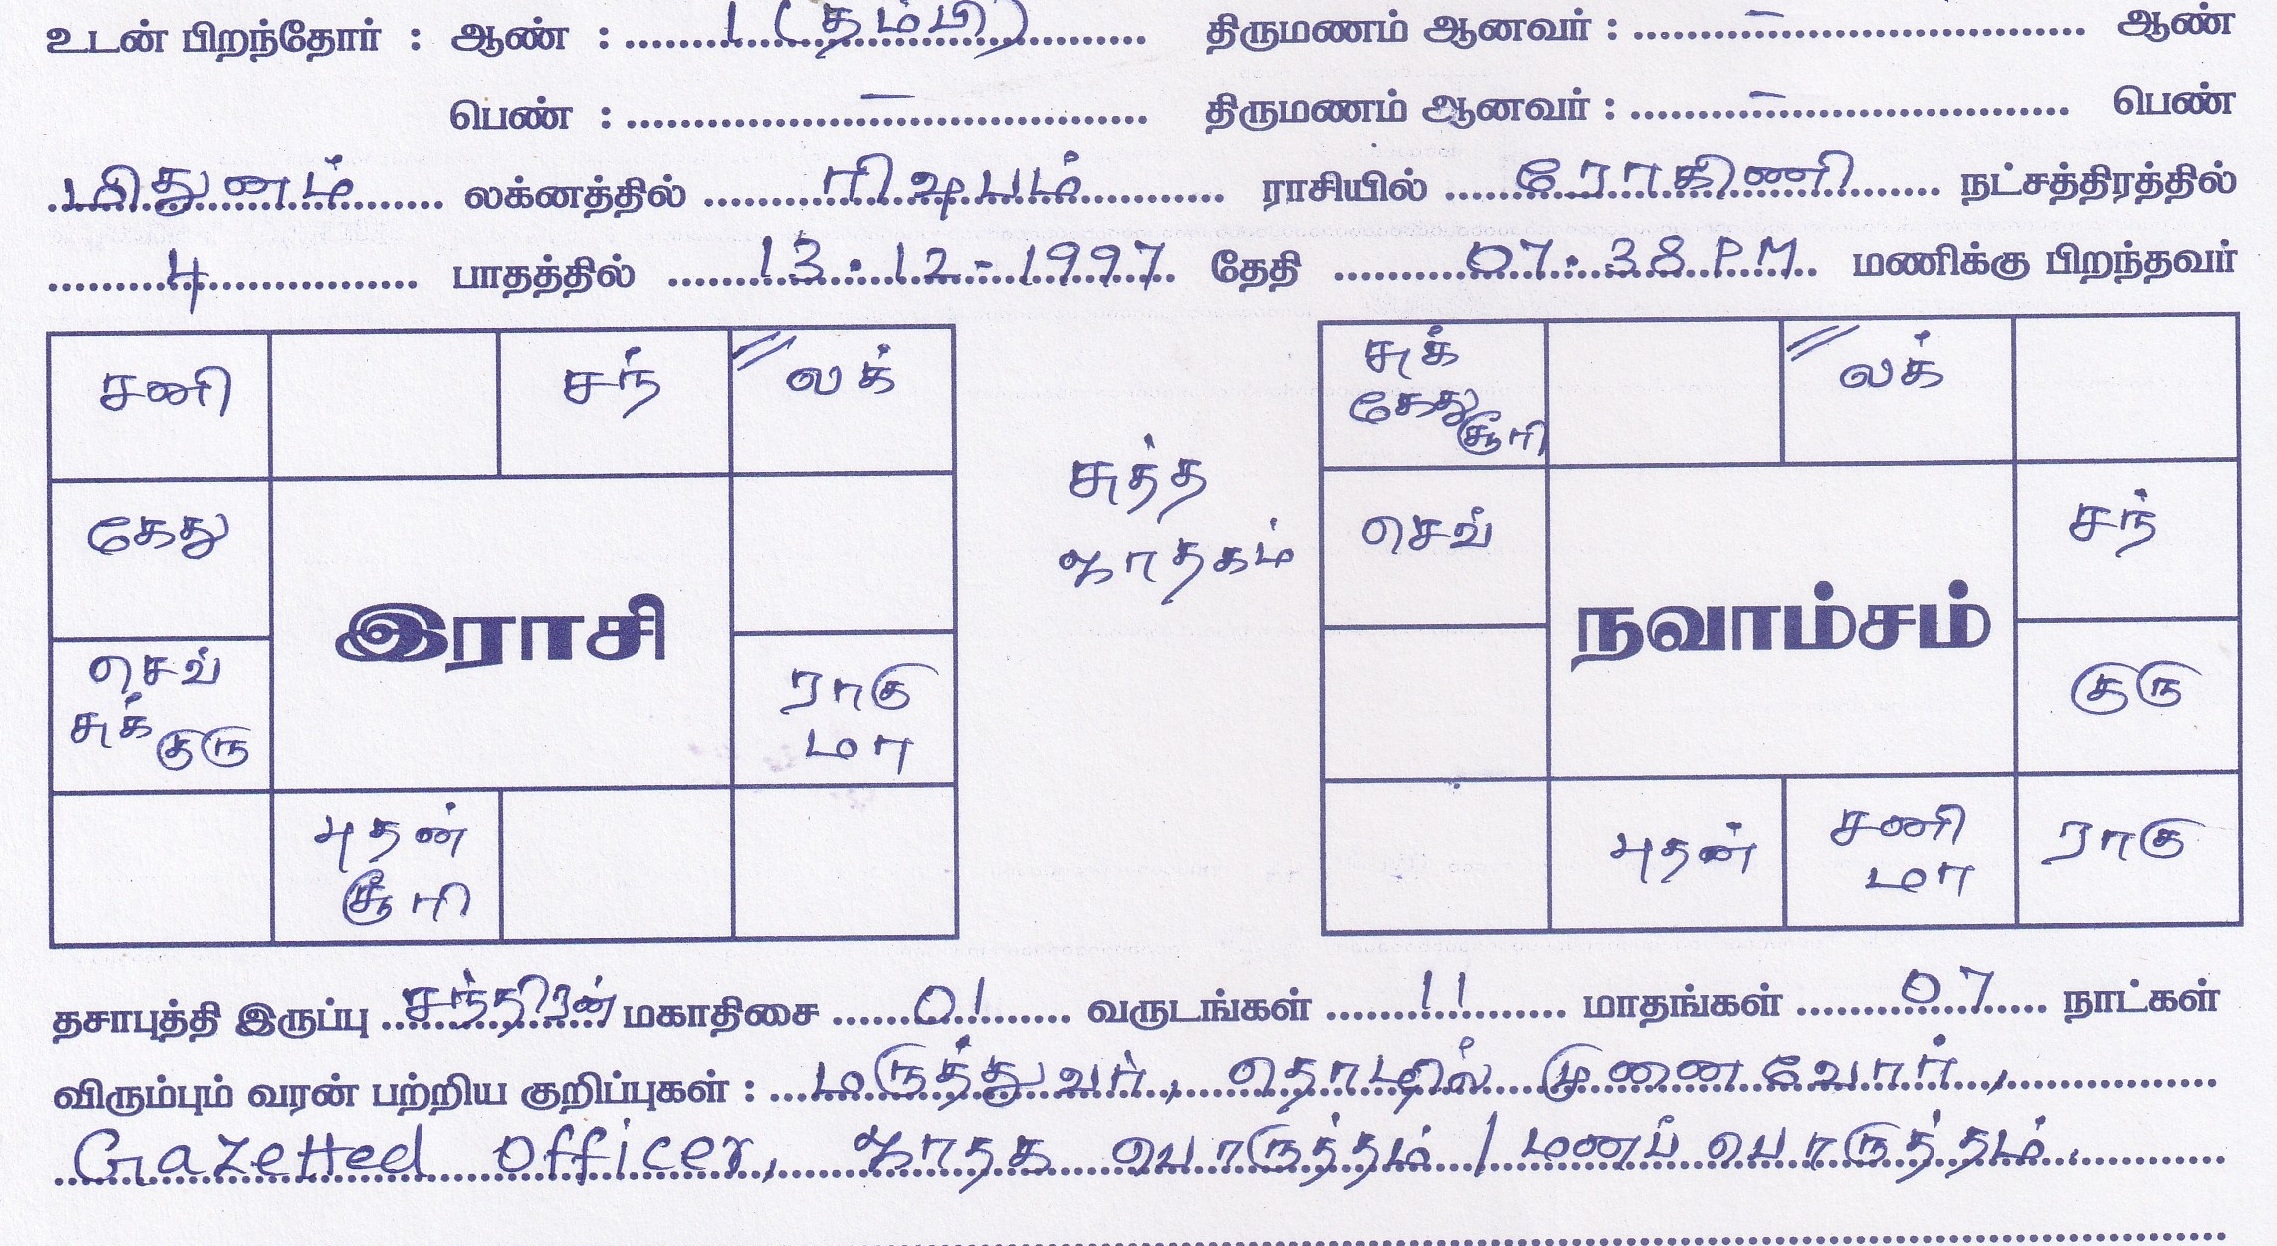 உடன் பிறந்தோர் : ஆண் : 1 (தம்பி) திருமணம் ஆனவர் : – ஆண்
பெண் : – திருமணம் ஆனவர் : – பெண்
மிதுனம் லக்னத்தில் ரிஷபம் ராசியில் ரோகிணி நட்சத்திரத்தில்
4 பாதத்தில் 13.12-1997 தேதி 07.38 PM மணிக்கு பிறந்தவர்
சனி சந் லக்
கேது
செவ் சுக் குரு
ராகு மா
புதன் சூரி
இராசி
சுத்த
ஜாதகம்
சுக் கேது சூரி லக்
செவ் சந்
குரு
புதன் சனி மா ராகு
நவாம்சம்
தசாபுத்தி இருப்பு சந்திரன் மகாதிசை 01 வருடங்கள் 11 மாதங்கள் 07 நாட்கள்
விரும்பும் வரன் பற்றிய குறிப்புகள் : மருத்துவர், தொழில் முனைவோர்,
Gazetted officer, ஜாதக பொருத்தம் / மணப் பொருத்தம்.